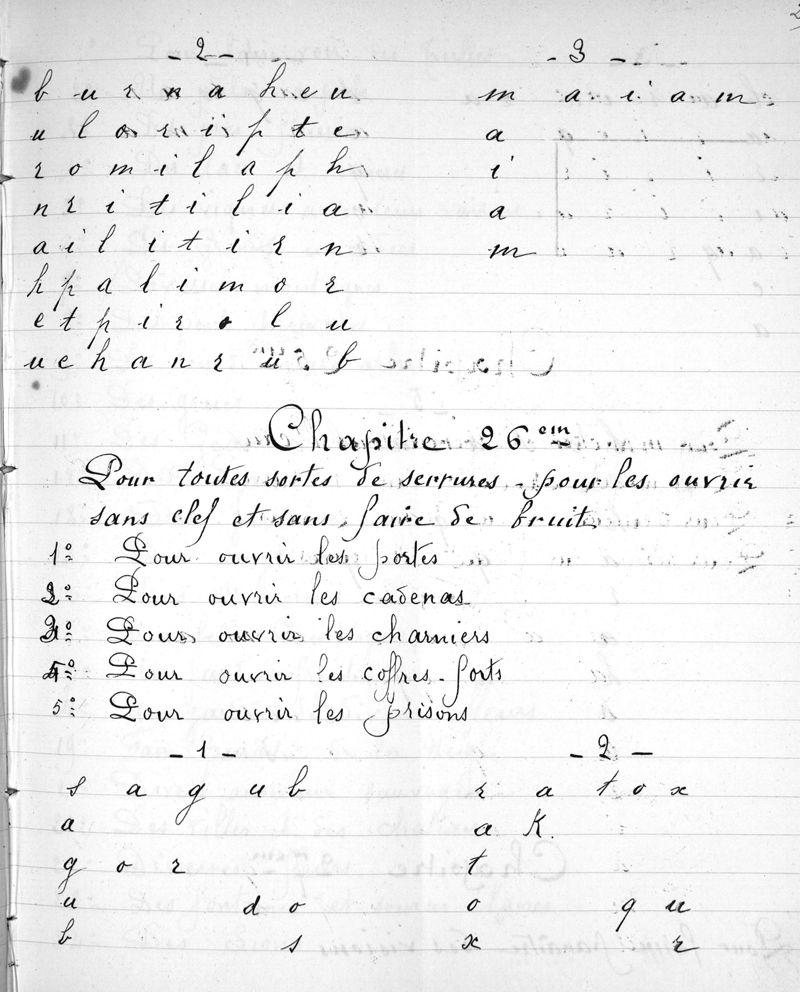 - 2 - - 3 -
b u r n a h e u m a i a m
u l o r i p t e a
r o m i l a p h i
n r i t i l i a a
a i l i t i r n m
h p a l i m o r
e t p i r o l u
u e h a n r u b
Chapitre 26 em
Pour toutes sortes de serrures - pour les ouvrir
sans clef et sans faire de bruit
1º Pour ouvrir les portes
2º Pour ouvrir les cadenas
3º Pour ouvrir les charniers
4º Pour ouvrir les coffres-forts
5º Pour ouvrir les prisons
- 1 - - 2 -
s a g u b r a t o x
a a K.
g o r t
u d o o q u
b s x r